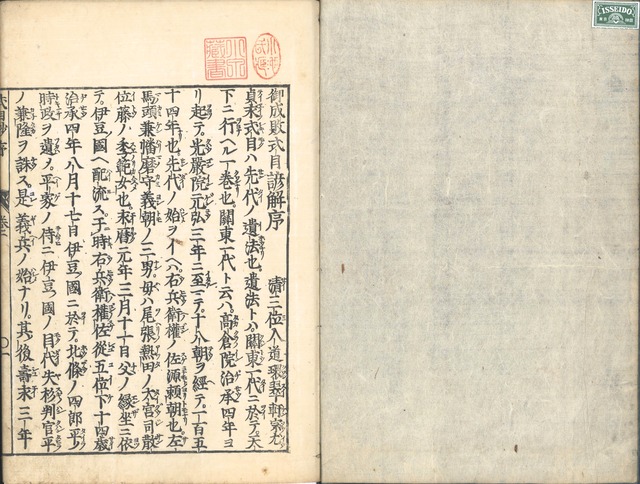 御成敗式目諺解序
清三位入道環翠軒宗尤
貞永式目ハ先代ノ遺法也遺法トハ關東一代ニ於テ天
下ニ行ヘル一巻也關東一代ト云ハ高倉院治承四年ヨ
リ起テ光嚴院元弘三年ニ至テ十八朝ヲ經テ一百五
十四年也先代ノ始ヲイヘハ右兵衛權ノ佐源頼朝也左
馬頭兼播磨守義朝ノ三男母ハ尾張熱田ノ大宮司散
位藤ノ季範女也永暦元年三月十一日父ノ縁坐ニ依
テ伊豆國ヘ配流ス于時右兵衛權佐從五位下十四歳
治承四年八月十七日伊豆國ニ於テ北條ノ四郎平
時政ヲ遣メ平家ノ侍ニ伊豆國ノ目代矢杉判官平
ノ兼隆ヲ誅ス是義兵ノ始ナリ其後壽永三年
式目抄序
ISSEIDO